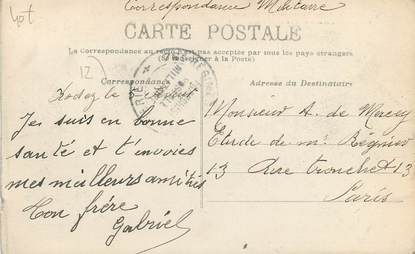 40t
Correspondance Militaire
CARTE POSTALE
La Correspondance au recto n'est pas acceptée par tous les pays étrangers
(Se renseigner à la Poste)
12
Correspondance
Rodez le
Je suis en bonne
santé et t'envoies
mes meilleurs amitiés
Ton frère
Gabriel
Adresse du Destinataire
Monsieur A. de
Etude de Me Régnier
13 Rue Tronchet 13
Paris